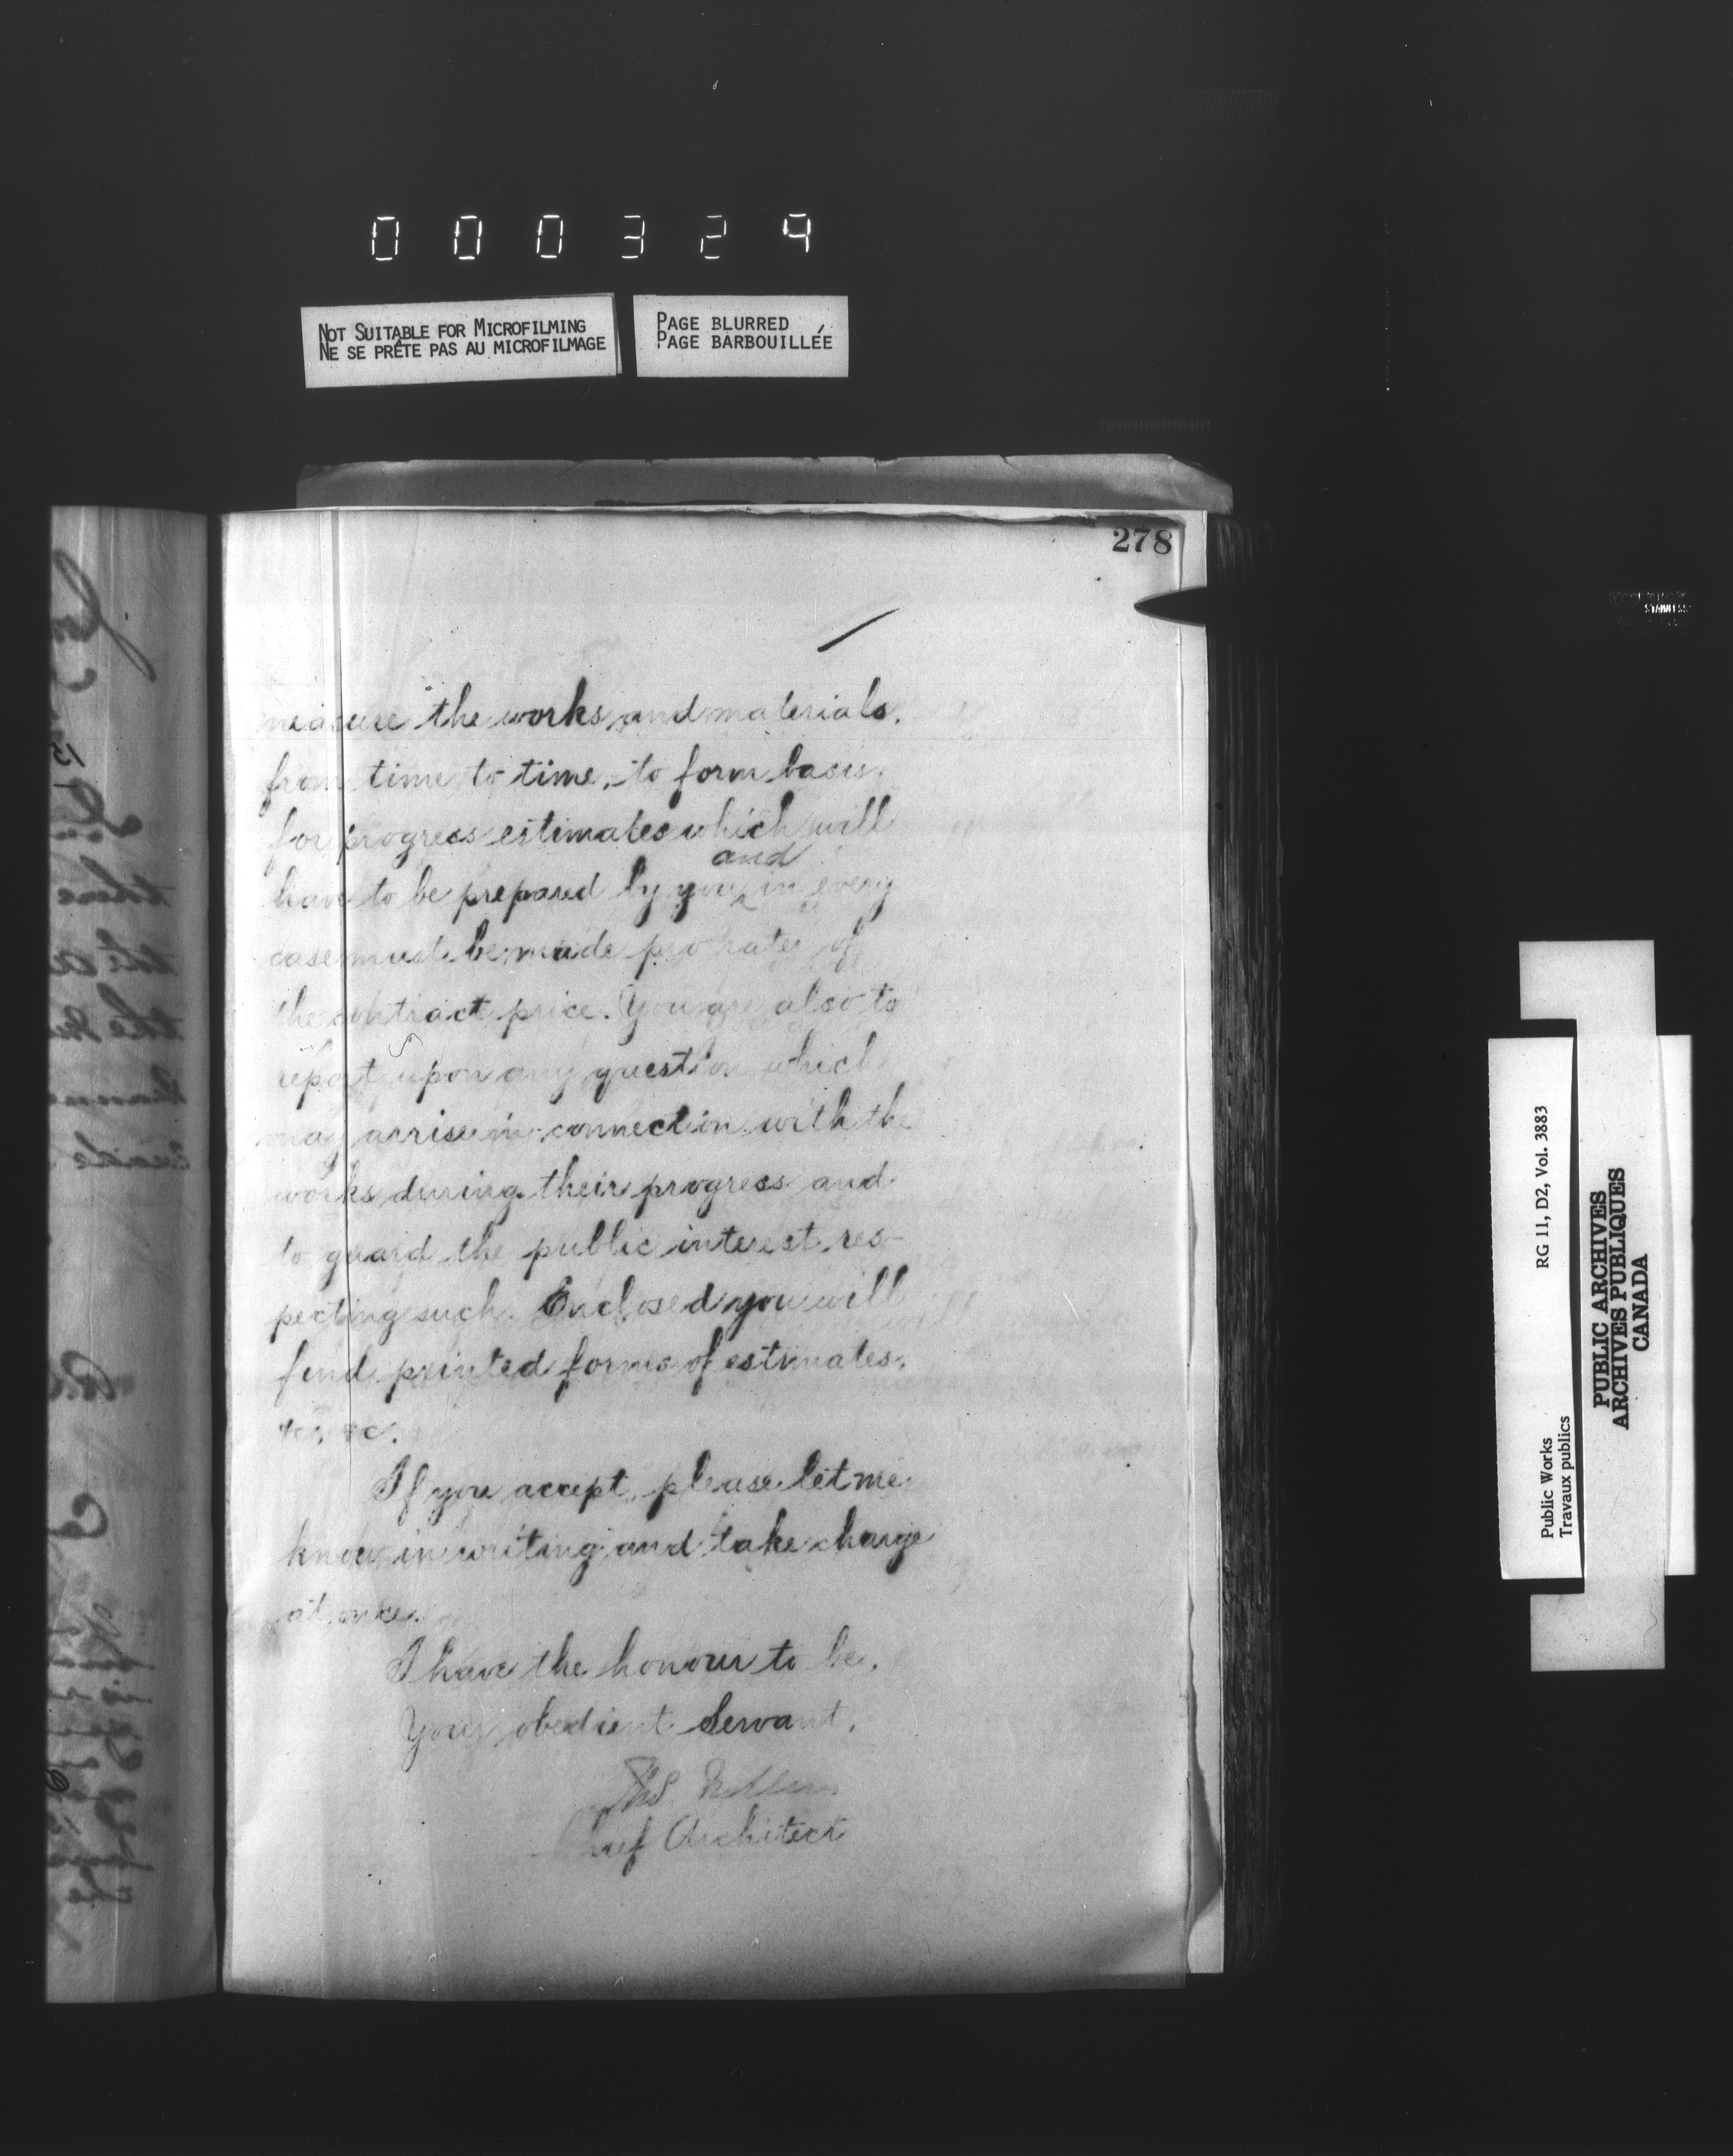 000324
NOT SUITABLE FOR MICROFILMING
NE SE PRÊTE PAS AU MICROFILMAGE
PAGE BLURRED
PAGE BARBOUILLÉE
278
measure the works and materials,
from time to time, to form basis
for progress estimates which will
and
have to be prepared by you in every
case must be made pro rata of
the contract price. You are also to
report upon any question which
may arrise in connection with the
works during their progress and
to guard the public interest res-
pecting such. Enclosed you will
find printed forms of estimates,
&c, &c.
If you accept, please let me
know in writing and take charge
at once.
I have the honour to be,
Your obedient Servant,
Chief Architect
Public Works
Travaux publics
RG 11, D2, Vol. 3883
PUBLIC ARCHIVES
ARCHIVES PUBLIQUES
CANADA